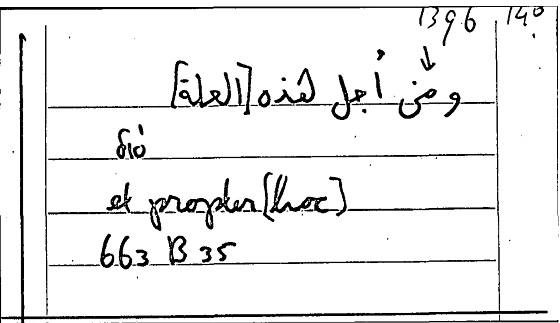 1396, 14⁰
↓
ومن أجل هذه [العلة]
διό
et propter [hoc]
663 B 35